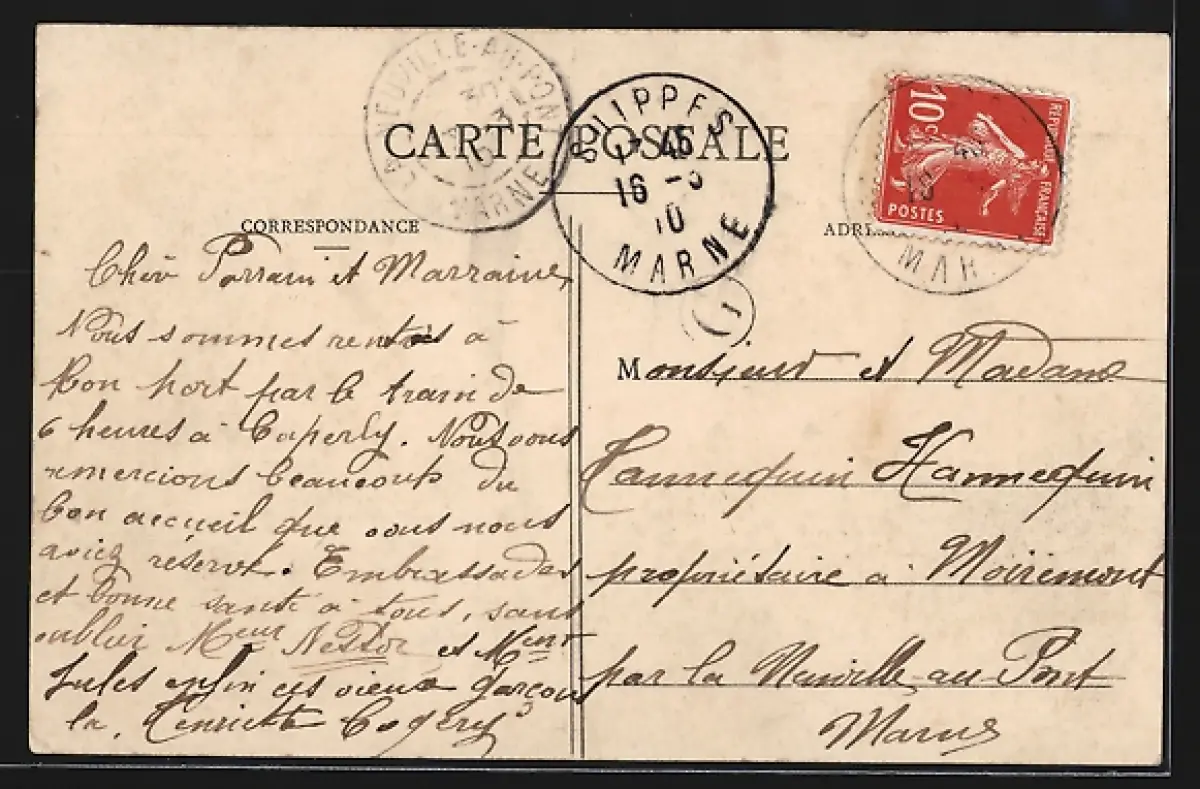 CARTE POSTALE
LA NEUVILLE-AU-PONT
MARNE
SUIPPES
17 45
16 -3
10
MARNE
10c
POSTES
REPUBLIQUE FRANÇAISE
MAR
CORRESPONDANCE
ADRES
Chèr Parrain et Marraine,
Nous sommes rentrés à
bon port par le train de
6 heures à Cuperly. Nous vous
remercions beaucoup du
bon accueil que vous nous
aviez réservé. Embrassades
et bonne santé à tous, sans
oublier Meur Nestor et Meur
Jules enfin ces vieux garçons
la, Henriette
Monsieur et Madame
Hannequin Hannequin
propriétaire à Moiremont
par la Neuville-au-Pont
Marne